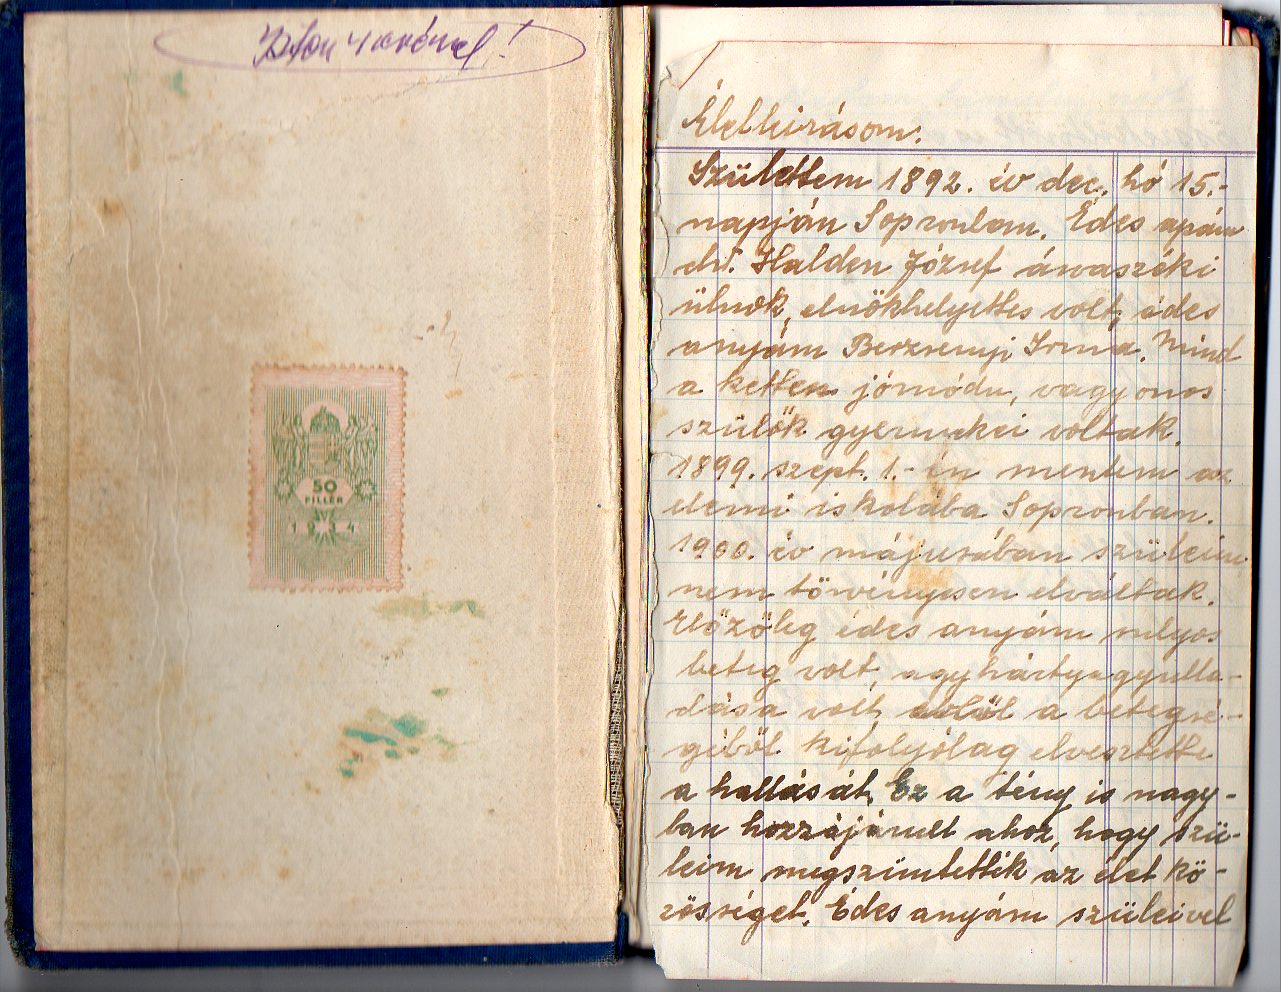 50
FILLÉR
1934
Életleirásom.
Születtem 1892. év dec. hó 15.-
napján Sopronban. Édes apám
dr. Halden József árvaszéki
ülnök, elnökhelyettes volt, édes
anyám Berzsenyi Irma. Mind
a ketten jómódu, vagyonos
szülők gyermekei voltak.
1899. szept. 1.-én mentem az
elemi iskolába Sopronban.
1900. év májusában szüleim
nem törvényesen elváltak.
Előzőleg édes anyám sulyos
beteg volt, agyhártyagyulla-
dása volt, ebből a betegsé-
géből kifolyólag elvesztette
a hallását. Ez a tény is nagy-
ban hozzájárult ahoz, hogy szü-
leim megszüntették az élet kö-
zösséget. Édes anyám szüleivel